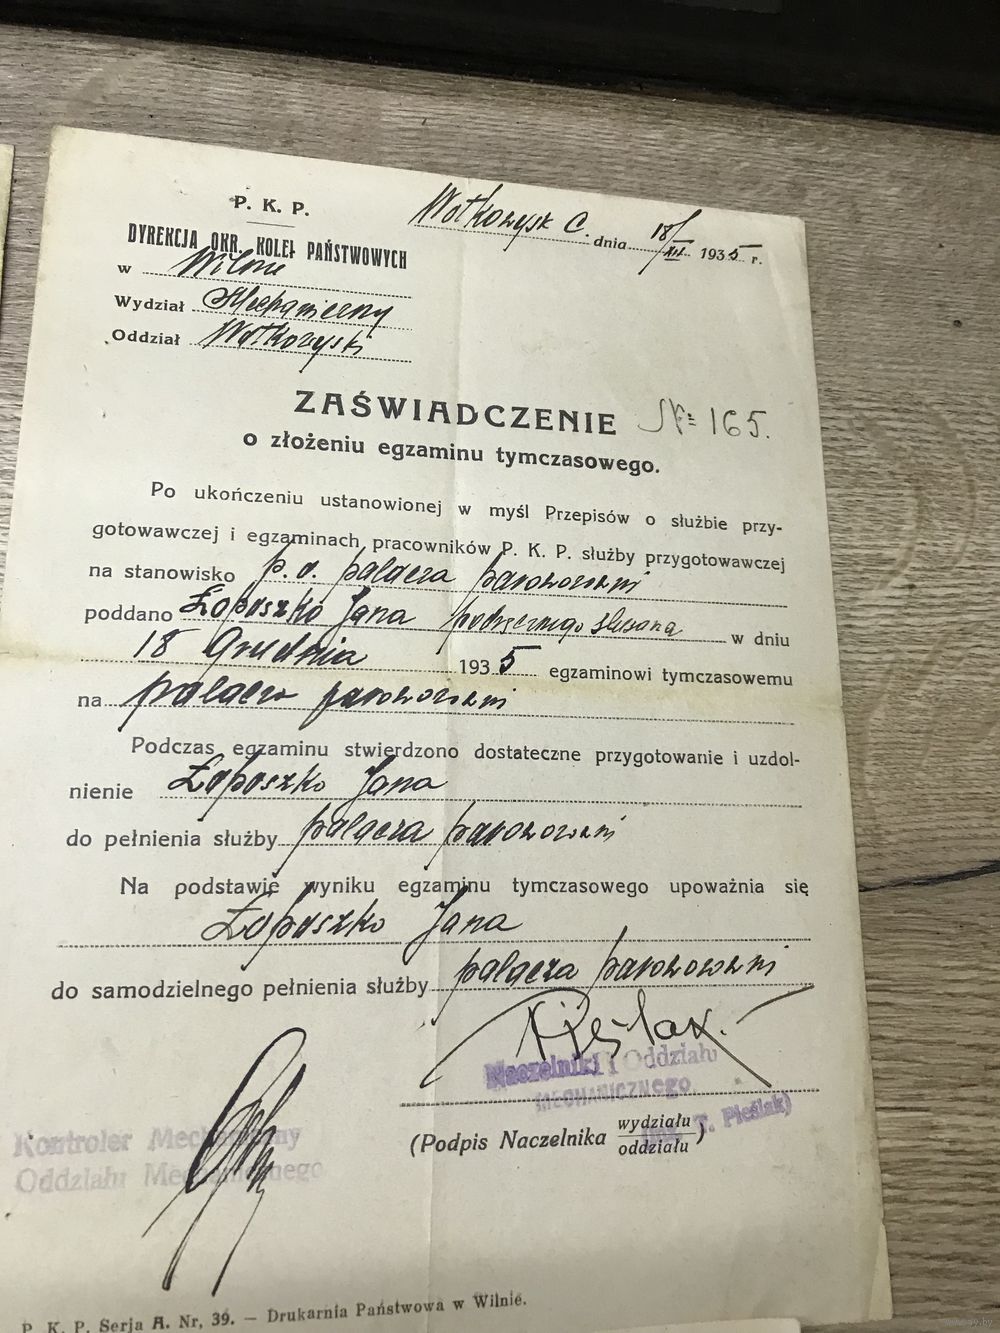 P. K. P.
Wołkowysk C. dnia 18/XII 1935 r.
DYREKCJA OKR. KOLEJ PAŃSTWOWYCH
w Wilnie
Wydział Mechaniczny
Oddział Wołkowyski
ZAŚWIADCZENIE № 165.
o złożeniu egzaminu tymczasowego.
Po ukończeniu ustanowionej w myśl Przepisów o służbie przy-
gotowawczej i egzaminach pracowników P. K. P. służby przygotowawczej
na stanowisko p.o. palacza parowozowni
poddano Łoposzko Jana podręcznego ślusarza w dniu
18 Grudnia 1935 egzaminowi tymczasowemu
na palacza parowozowni
Podczas egzaminu stwierdzono dostateczne przygotowanie i uzdol-
nienie Łoposzko Jana
do pełnienia służby palacza parowozowni
Na podstawie wyniku egzaminu tymczasowego upoważnia się
Łoposzko Jana
do samodzielnego pełnienia służby palacza parowozowni
Pieślak.
Naczelnik Oddziału
MECHANICZNEGO
T. Pieślak)
(Podpis Naczelnika wydziału
oddziału)
Kontroler Mechaniczny
Oddziału Mechanicznego
P. K. P. Serja A. Nr, 39. — Drukarnia Państwowa w Wilnie.